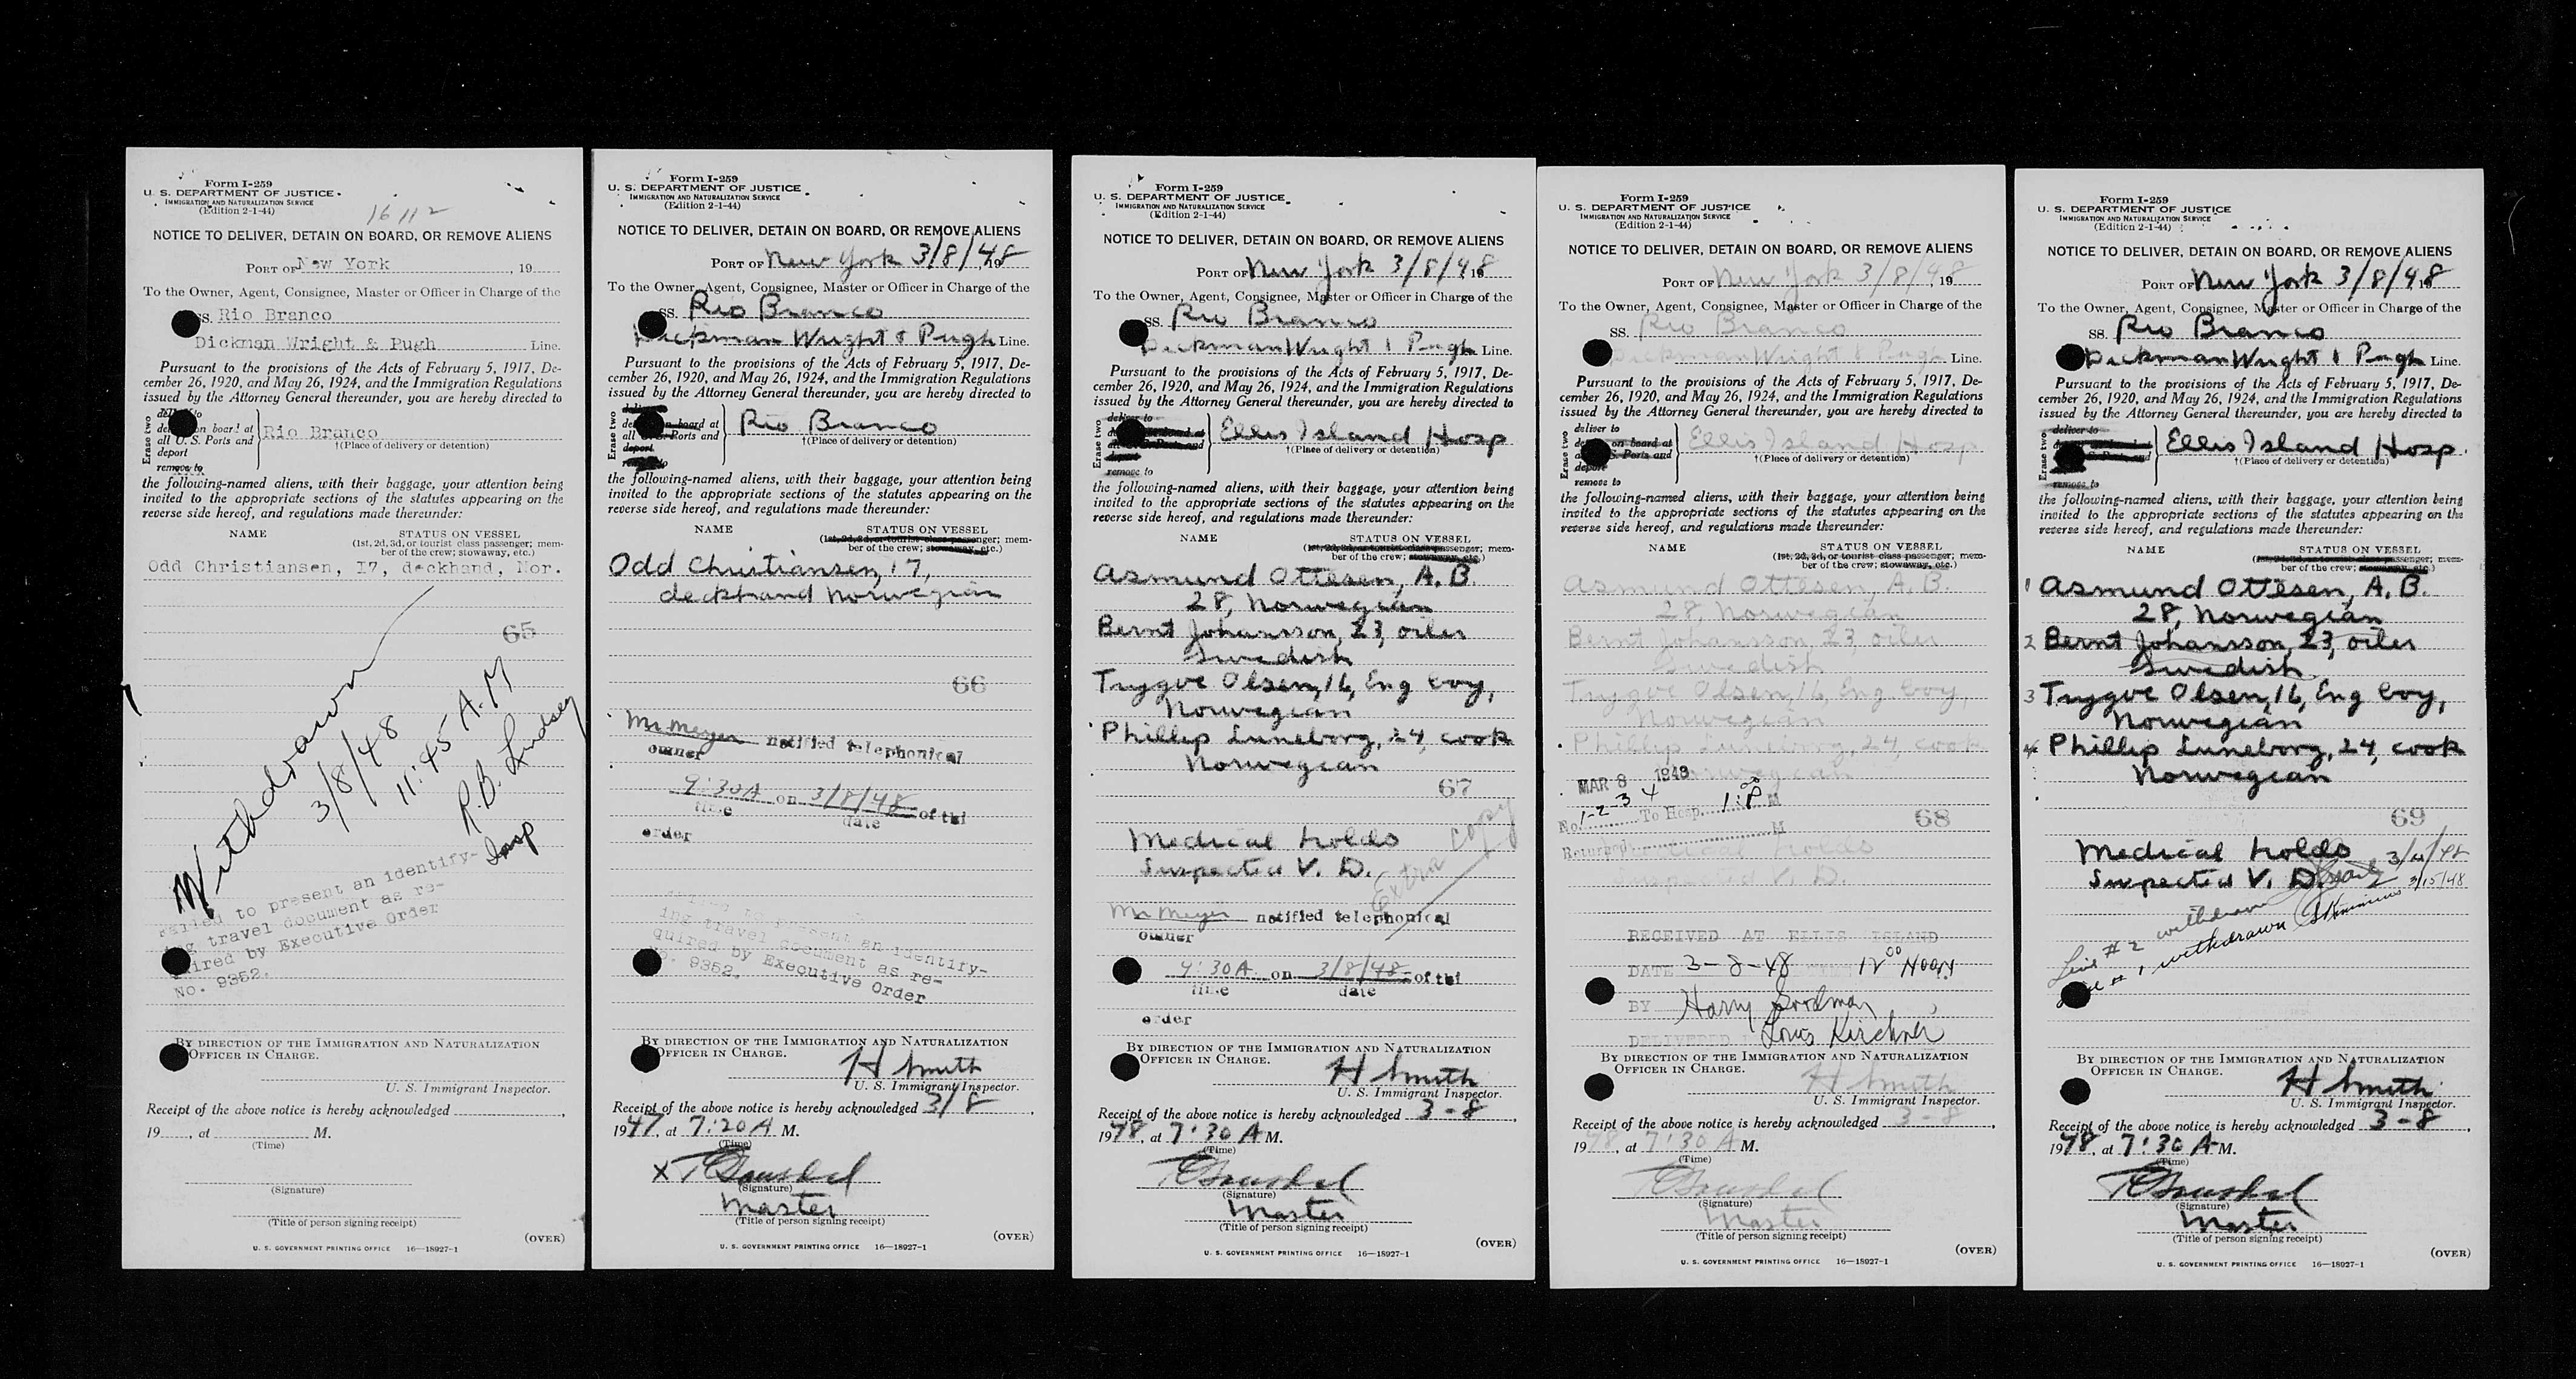 Form I-259
U. S. DEPARTMENT OF JUSTICE
IMMIGRATION AND NATURALIZATION SERVICE
(Edition 2-1-44)
16112
NOTICE TO DELIVER, DETAIN ON BOARD, OR REMOVE ALIENS
PORT OF New York, 19
To the Owner, Agent, Consignee, Master or Officer in Charge of the
SS. Rio Branco
Dickman Wright & Pugh Line.
Pursuant to the provisions of the Acts of February 5, 1917, De-
cember 26, 1920, and May 26, 1924, and the Immigration Regulations
issued by the Attorney General thereunder, you are hereby directed to
Erase two
on board at
all U. S. Ports and
deport
remove to
Rio Branco
†(Place of delivery or detention)
the following-named aliens, with their baggage, your attention being
invited to the appropriate sections of the statutes appearing on the
reverse side hereof, and regulations made thereunder:
NAME STATUS ON VESSEL
(1st, 2d, 3d, or tourist class passenger; mem-
ber of the crew; stowaway, etc.)
Odd Christiansen, I7, deckhand, Nor.
65
Withdrawn
3/8/48
11:45 A.M
R.B. Lindsey
Insp
Failed to present an identify-
ing travel document as re-
quired by Executive Order
No. 9352.
BY DIRECTION OF THE IMMIGRATION AND NATURALIZATION
OFFICER IN CHARGE.
U. S. Immigrant Inspector.
Receipt of the above notice is hereby acknowledged
19, at M.
(Time)
(Signature)
(Title of person signing receipt)
(OVER)
U. S. GOVERNMENT PRINTING OFFICE 16—18927-1
Form I-259
U. S. DEPARTMENT OF JUSTICE
IMMIGRATION AND NATURALIZATION SERVICE
(Edition 2-1-44)
NOTICE TO DELIVER, DETAIN ON BOARD, OR REMOVE ALIENS
PORT OF New York 3/8/48, 19
To the Owner, Agent, Consignee, Master or Officer in Charge of the
SS. Rio Branco
Dickman Wright & Pugh Line.
Pursuant to the provisions of the Acts of February 5, 1917, De-
cember 26, 1920, and May 26, 1924, and the Immigration Regulations
issued by the Attorney General thereunder, you are hereby directed to
Erase two
on board at
all U. S. Ports and
deport
Rio Branco
†(Place of delivery or detention)
the following-named aliens, with their baggage, your attention being
invited to the appropriate sections of the statutes appearing on the
reverse side hereof, and regulations made thereunder:
NAME STATUS ON VESSEL
(1st, 2d, 3d, or tourist class passenger; mem-
ber of the crew; stowaway, etc.)
Odd Christiansen, 17,
deckhand Norwegian
66
Mr Meyer notified telephonical
owner
9:30A on 3/8/48 of thi
time date
order
ing travel document as re-
quired by Executive Order
No. 9352.
BY DIRECTION OF THE IMMIGRATION AND NATURALIZATION
OFFICER IN CHARGE.
H Smith
U. S. Immigrant Inspector.
Receipt of the above notice is hereby acknowledged 3/8,
1947, at 7:20 A M.
(Time)
X
(Signature)
Master
(Title of person signing receipt)
(OVER)
U. S. GOVERNMENT PRINTING OFFICE 16—18927-1
Form I-259
U. S. DEPARTMENT OF JUSTICE
IMMIGRATION AND NATURALIZATION SERVICE
(Edition 2-1-44)
NOTICE TO DELIVER, DETAIN ON BOARD, OR REMOVE ALIENS
PORT OF New York 3/8/48 19
To the Owner, Agent, Consignee, Master or Officer in Charge of the
SS. Rio Branco
Dickman Wright & Pugh Line.
Pursuant to the provisions of the Acts of February 5, 1917, De-
cember 26, 1920, and May 26, 1924, and the Immigration Regulations
issued by the Attorney General thereunder, you are hereby directed to
Erase two
deliver to
deport
remove to
Ellis Island Hosp
†(Place of delivery or detention)
the following-named aliens, with their baggage, your attention being
invited to the appropriate sections of the statutes appearing on the
reverse side hereof, and regulations made thereunder:
NAME STATUS ON VESSEL
(1st, 2d, 3d, or tourist class passenger; mem-
ber of the crew; stowaway, etc.)
Asmund Ottesen, A.B.
28, Norwegian
Bernt Johansson, 23, oiler
Swedish
Trygve Olsen, 16, Eng boy,
Norwegian
Phillip Luneborg, 24, cook
Norwegian
67
Medical holds
Suspected V. D.
Extra copy
Mr Meyer notified telephonical
owner
9:30A on 3/8/48 of thi
time date
order
BY DIRECTION OF THE IMMIGRATION AND NATURALIZATION
OFFICER IN CHARGE.
H Smith
U. S. Immigrant Inspector.
Receipt of the above notice is hereby acknowledged 3-8,
1948, at 7:30 A M.
(Time)
(Signature)
Master
(Title of person signing receipt)
(OVER)
U. S. GOVERNMENT PRINTING OFFICE 16—18927-1
Form I-259
U. S. DEPARTMENT OF JUSTICE
IMMIGRATION AND NATURALIZATION SERVICE
(Edition 2-1-44)
NOTICE TO DELIVER, DETAIN ON BOARD, OR REMOVE ALIENS
PORT OF New York 3/8/48, 19
To the Owner, Agent, Consignee, Master or Officer in Charge of the
SS. Rio Branco
Dickman Wright & Pugh Line.
Pursuant to the provisions of the Acts of February 5, 1917, De-
cember 26, 1920, and May 26, 1924, and the Immigration Regulations
issued by the Attorney General thereunder, you are hereby directed to
Erase two
deliver to
on board at
Ports and
deport
remove to
Ellis Island Hosp
†(Place of delivery or detention)
the following-named aliens, with their baggage, your attention being
invited to the appropriate sections of the statutes appearing on the
reverse side hereof, and regulations made thereunder:
NAME STATUS ON VESSEL
(1st, 2d, 3d, or tourist class passenger; mem-
ber of the crew; stowaway, etc.)
Asmund Ottesen, A.B.
28, Norwegian
Bernt Johansson, 23, oiler
Swedish
Trygve Olsen, 16, Eng boy,
Norwegian
Phillip Luneborg, 24, cook
Norwegian
MAR 8 1948
No. 1-2-3 4 To Hosp. 1:00 P M
Returned M
68
Medical holds
Suspected V. D.
RECEIVED AT ELLIS ISLAND
DATE 3-8-48 12 00 Noon
BY Harry Goodman
DELIVERED Louis Kirchner
BY DIRECTION OF THE IMMIGRATION AND NATURALIZATION
OFFICER IN CHARGE.
H Smith
U. S. Immigrant Inspector.
Receipt of the above notice is hereby acknowledged 3-8,
1948, at 7:30 A M.
(Time)
(Signature)
Master
(Title of person signing receipt)
(OVER)
U. S. GOVERNMENT PRINTING OFFICE 16—18927-1
Form I-259
U. S. DEPARTMENT OF JUSTICE
IMMIGRATION AND NATURALIZATION SERVICE
(Edition 2-1-44)
NOTICE TO DELIVER, DETAIN ON BOARD, OR REMOVE ALIENS
PORT OF New York 3/8/48 19
To the Owner, Agent, Consignee, Master or Officer in Charge of the
SS. Rio Branco
Dickman Wright & Pugh Line.
Pursuant to the provisions of the Acts of February 5, 1917, De-
cember 26, 1920, and May 26, 1924, and the Immigration Regulations
issued by the Attorney General thereunder, you are hereby directed to
Erase two
deliver to
remove to
Ellis Island Hosp.
†(Place of delivery or detention)
the following-named aliens, with their baggage, your attention being
invited to the appropriate sections of the statutes appearing on the
reverse side hereof, and regulations made thereunder:
NAME STATUS ON VESSEL
(1st, 2d, 3d, or tourist class passenger; mem-
ber of the crew; stowaway, etc.)
1 Asmund Ottesen, A.B.
28, Norwegian
2 Bernt Johansson, 23, oiler
Swedish
3 Trygve Olsen, 16, Eng boy,
Norwegian
4 Phillip Luneborg, 24, cook
Norwegian
69
Medical holds
Suspected V. D. 3/15/48
Line #2 withdrawn
Line #1 withdrawn
BY DIRECTION OF THE IMMIGRATION AND NATURALIZATION
OFFICER IN CHARGE.
H Smith
U. S. Immigrant Inspector.
Receipt of the above notice is hereby acknowledged 3-8,
1948, at 7:30 A M.
(Time)
(Signature)
Master
(Title of person signing receipt)
(OVER)
U. S. GOVERNMENT PRINTING OFFICE 16—18927-1